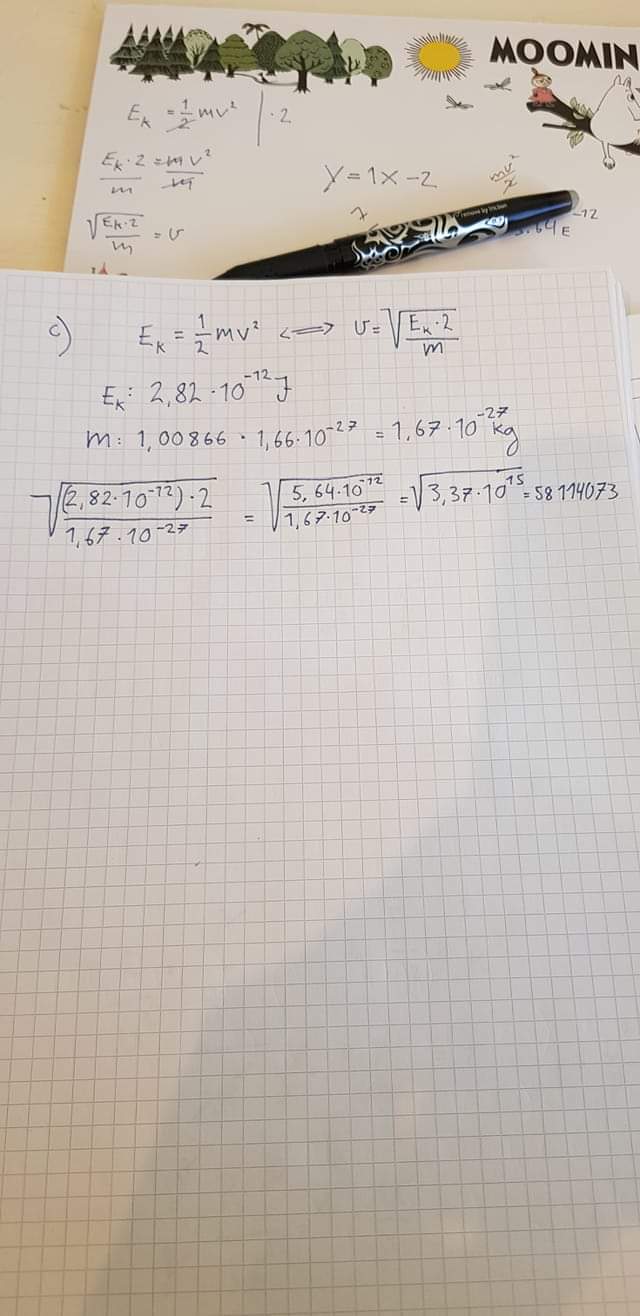 MOOMIN
E_K = 1/2 mv² | · 2
E_K · 2 / m = m v² / m
√(E_K · 2 / m) = v
y = 1x - 2
mv² / 2
remove by friction
3.64 E⁻¹²
c) E_K = 1/2 mv² <=> v = √(E_K · 2 / m)
E_K: 2,82 · 10⁻¹² J
m: 1,00866 · 1,66 · 10⁻²⁷ = 1,67 · 10⁻²⁷ kg
√((2,82 · 10⁻¹²) · 2 / 1,67 · 10⁻²⁷) = √(5,64 · 10⁻¹² / 1,67 · 10⁻²⁷) = √(3,37 · 10¹⁵) = 58114073